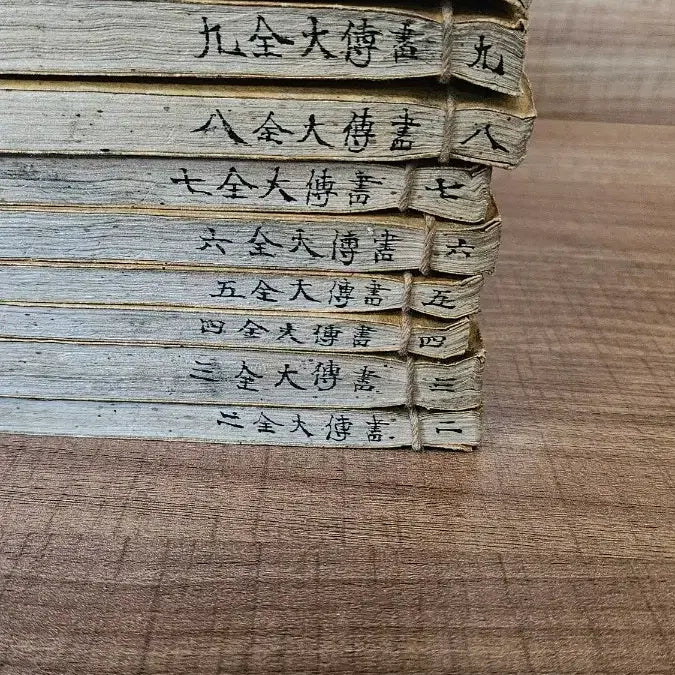 九 書傳大全九
八 書傳大全八
七 書傳大全七
六 書傳大全六
五 書傳大全五
四 書傳大全四
三 書傳大全三
二 書傳大全二